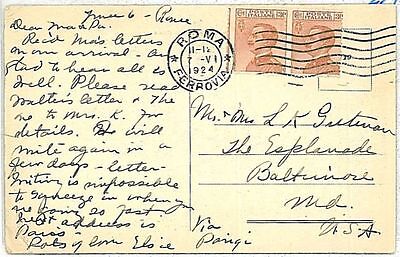 June 6 - Rome
Dear Ma & Pa:
Rec'd Ma's letters
on our arrival - are
glad to hear all is
well. Please read
Walter's letter & the
one to Mrs. K. for
details. We will
write again in a
few days - letter
writing is impossible
to squeeze in when
going so fast
next address is
Paris.
Lots of love Elsie
ROMA
11-12
7-VI
1924
FERROVIA
Mr & Mrs L K Gutman
The Esplanade
Baltimore
Md.
USA
Via
Parigi